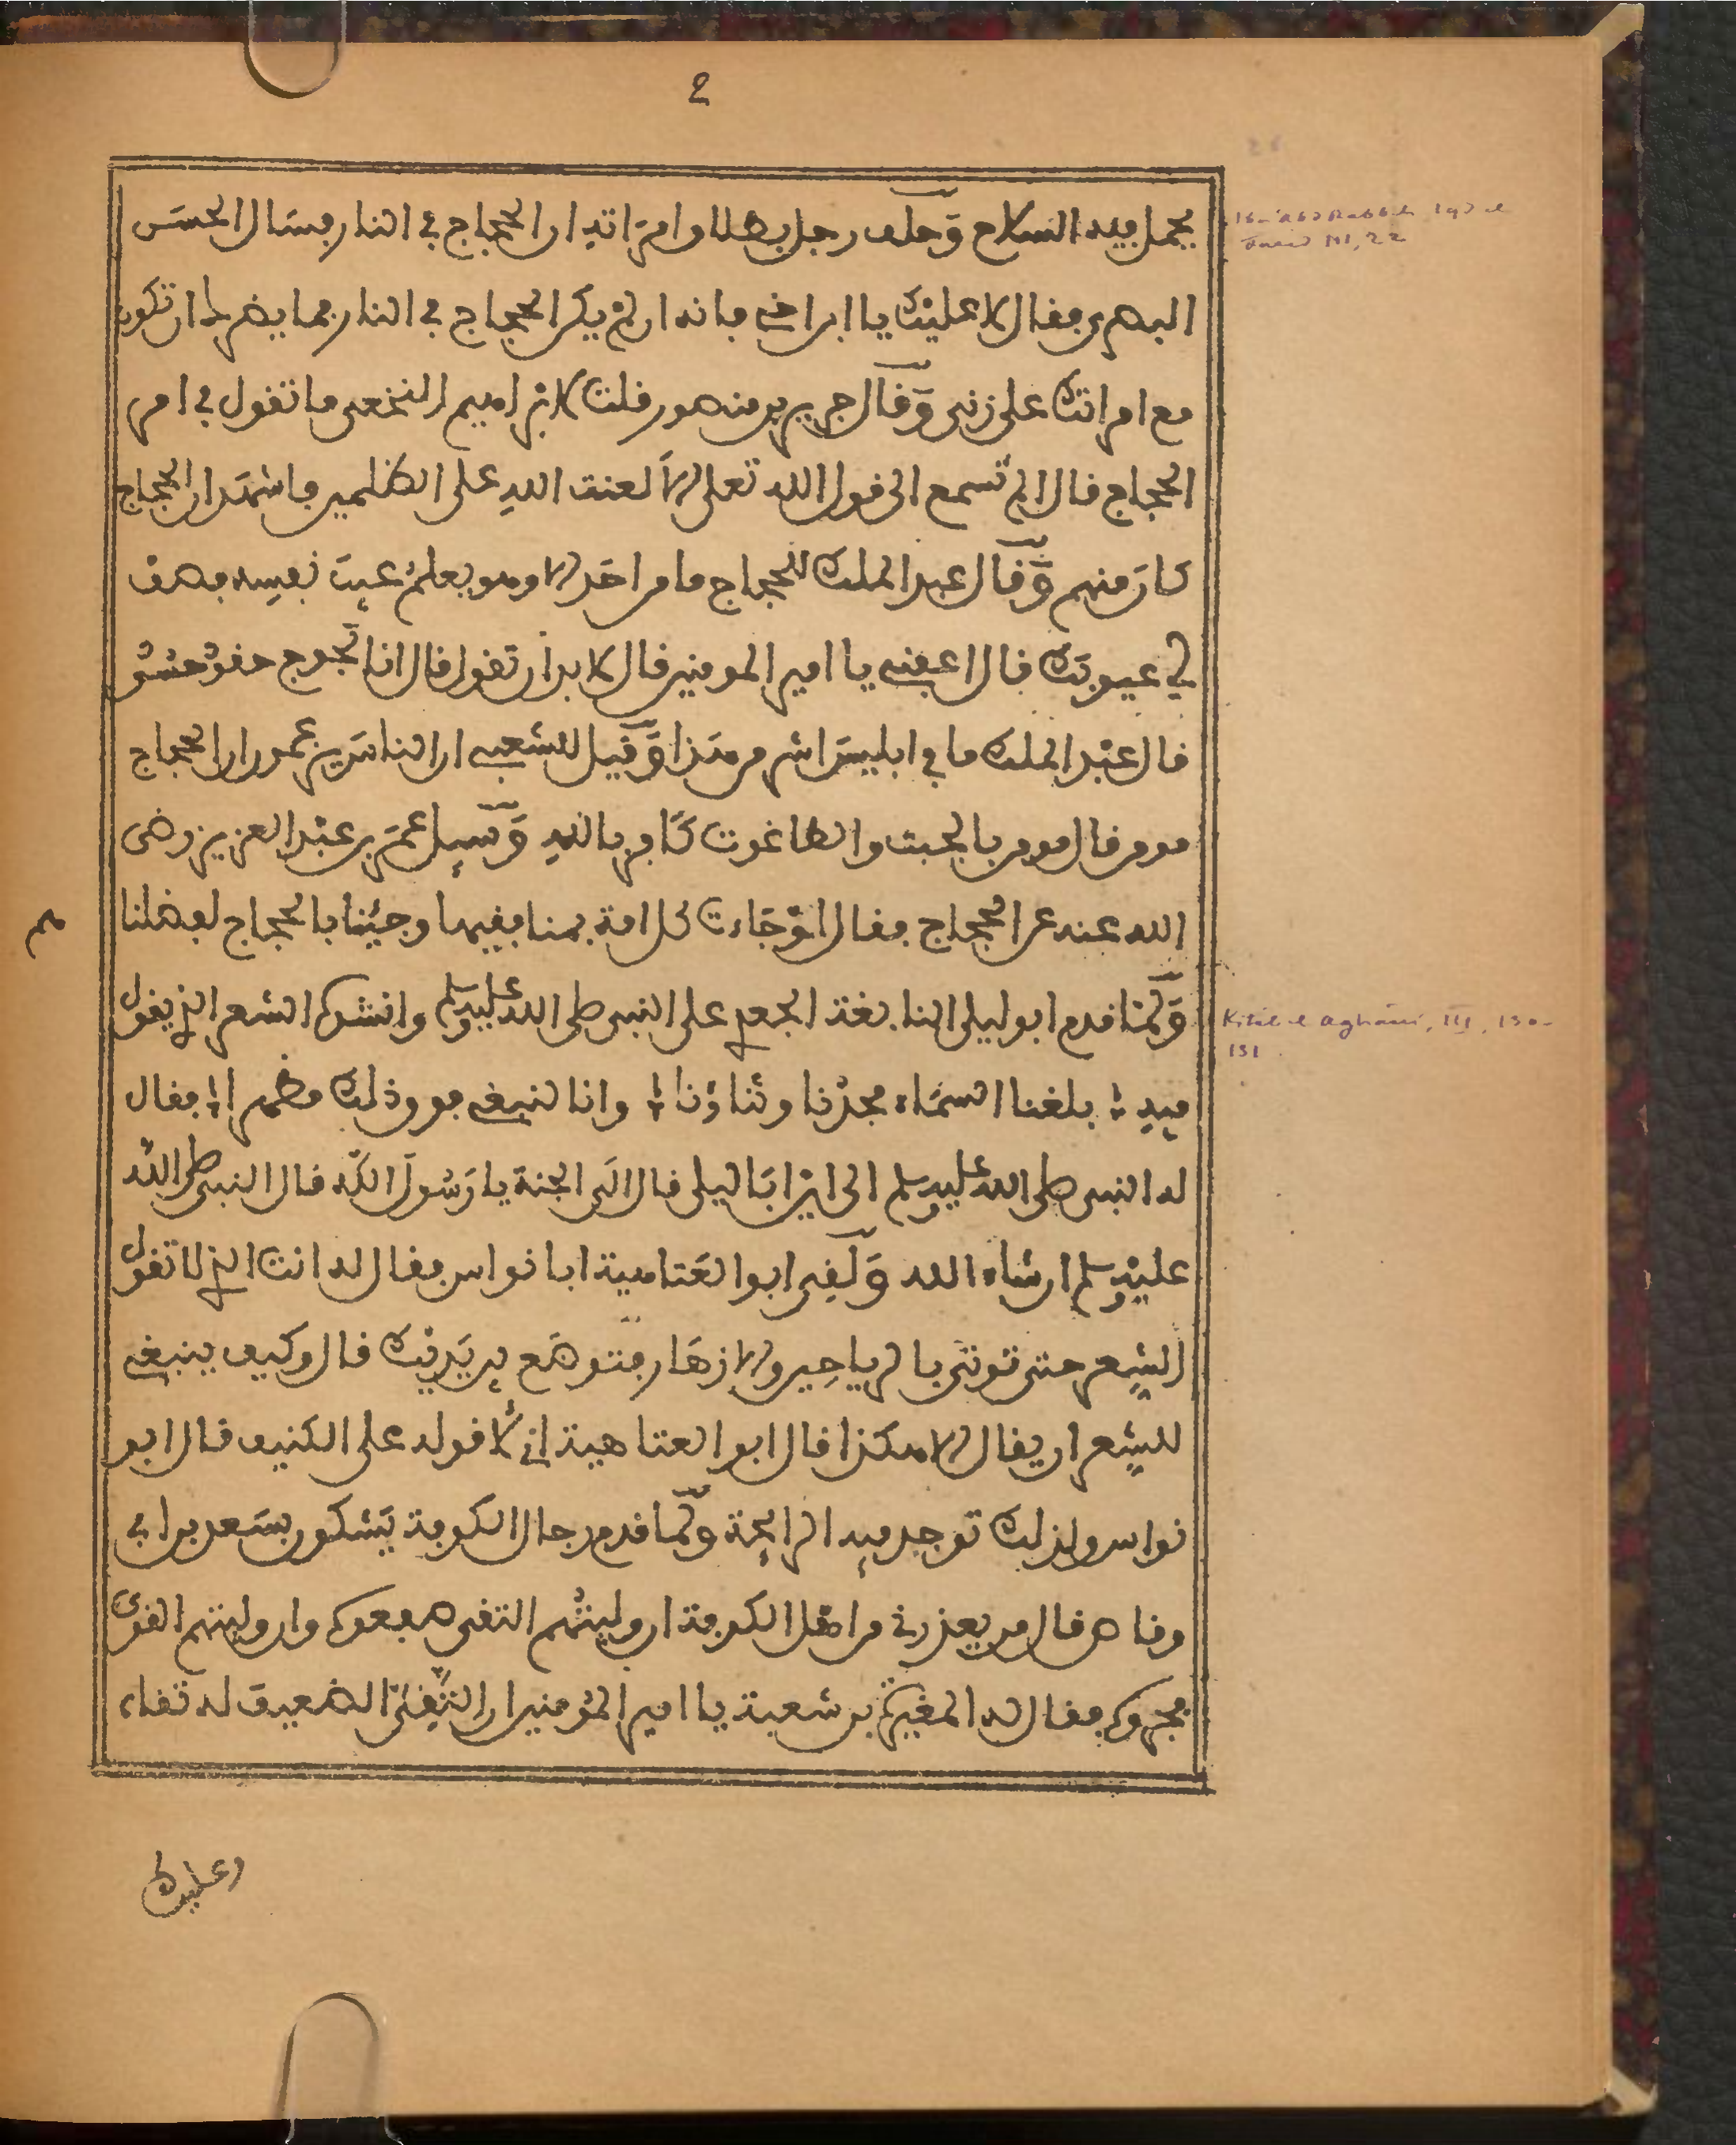 2
يحمل فيه السلاح وحلف رجل بطلاق امراته ان الحجاج في النار فسال الحسن
البصري فقال لا عليك يا ابن اخي فانه ان لم يكن الحجاج في النار فما يضرك ان تكون
مع امراتك على زنى وقال جرير بن منصور قلت لابراهيم النخعي ما تقول في امر
الحجاج قال الم تسمع الى قول الله تعلى الا لعنت الله على الظلمين فاشهد ان الحجاج
كان منهم وقال عبد الملك للحجاج ما من احد الا وهو يعلم عيب نفسه فصف
لي عيوبك قال اعفني يا امير المومنين قال لا بد ان تقول قال انا لجوج حقود حسود
قال عبد الملك ما في ابليس اشر من هذا وقيل للشعبي ان الناس يزعمون ان الحجاج
مومن قال مومن بالجبت والطاغوت كافر بالله وسيل عمر بن عبد العزيز رضي
الله عنه عن الحجاج فقال لو جاءت كل امة بمنافقيها وجينا بالحجاج لفضلنا
هم
ولما قدم ابو ليلى النابغة الجعدي على النبي صلى الله عليه وسلم وانشده الشعر الذي يقول
فيه بلغنا السماء مجدنا وثناؤنا وانا لنبغي فوق ذلك مظهرا فقال
له النبي صلى الله عليه وسلم الى اين ابا ليلى قال الى الجنة يا رسول الله قال النبي صلى الله
عليه وسلم ان شاء الله ولقي ابو العتاهية ابا نواس فقال له انت الذي لا تقول
الشعر حتى توتى بالرياحين والازهار فتوضع بين يديك قال وكيف ينبغي
للشعر ان يقال الا هكذا قال ابو العتاهية اني لاقوله على الكنيف قال ابو
نواس ولذلك توجد فيه الرايحة ولما قدم رجال الكوفة يشكون بسعد بن ابي
وقاص قال من يعذرني من اهل الكوفة ان وليتهم التقي ضعفوه وان وليتهم القوي
فجروه فقال له المغيرة بن شعبة يا امير المؤمنين ان التقي الضعيف له تقاه
وعليك
Kitab el Aghani, III, 130-
131